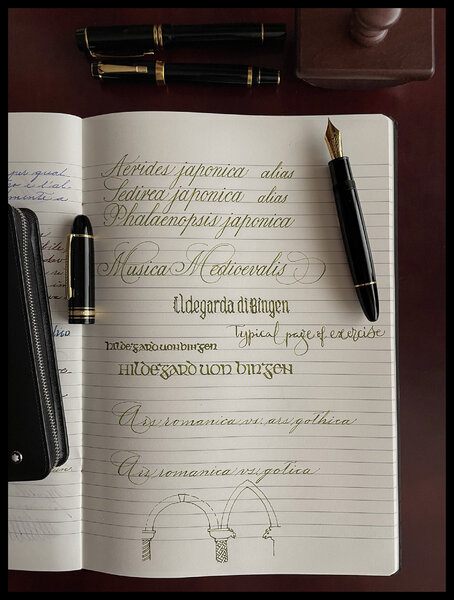 pur qual
Aerides japonica alias
Sedirea japonica alias
Phalaenopsis japonica
Musica Medioevalis
Ildegarda di Bingen
Typical page of exercise
hildegard von bingen
hildegard von bingen
Ars romanica vs. ars gothica
Ars romanica vs gotica